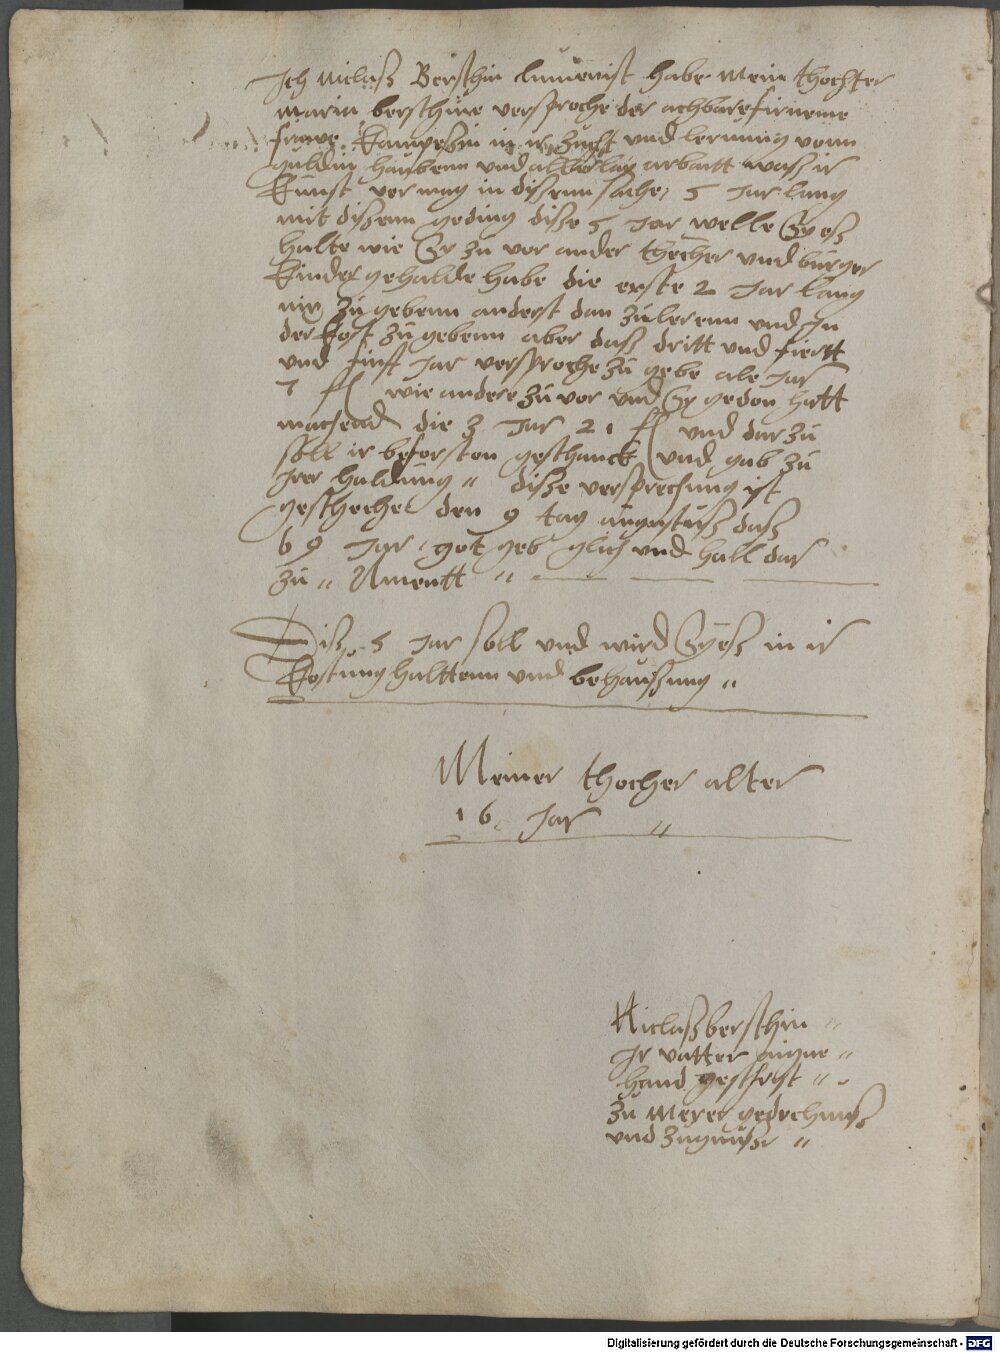 Ich Niclaß Berschin lumenist habe mein thochter
Maria berschine versproche der achbare firneme
frawe Kampeßin in ir zucht und lernung vonn
guldin haubenn und arbatt waß ir
kunst vermag in dißenn sache, 5 Jar lang
mit dißenn geding diße 5 Jar welle Sy eß
halte wie Sy zu vor ander thecher und burger
kinder gehalde habe die erste 2 Jar lang
nix zu gebenn anderst dan zu lerenn und in
der kost zu gebenn aber daß dritt und fiertt
und finft Jar versproche zu gebe ale Jar
7 fl wie andere zu vor und Sy gedon hatt
machend die 3 Jar 21 fl und dar zu
soll ir geschanck und gab zu
irer haldung " diße versprechung ist
geschechet den 9 tag augustuß daß
69 Jar got geb glich und hall dar
zu " Amentt "
Diß 5 Jar soll und wird Sy eß in ir
kostung halttenn und behaußung "
Meiner thocher alter
16 Jar "
Niclaß berschin "
Ir vatter aigne "
hand geschrift "
zu merer gedechnuß
und zugnußer "
Digitalisierung gefördert durch die Deutsche Forschungsgemeinschaft - DFG